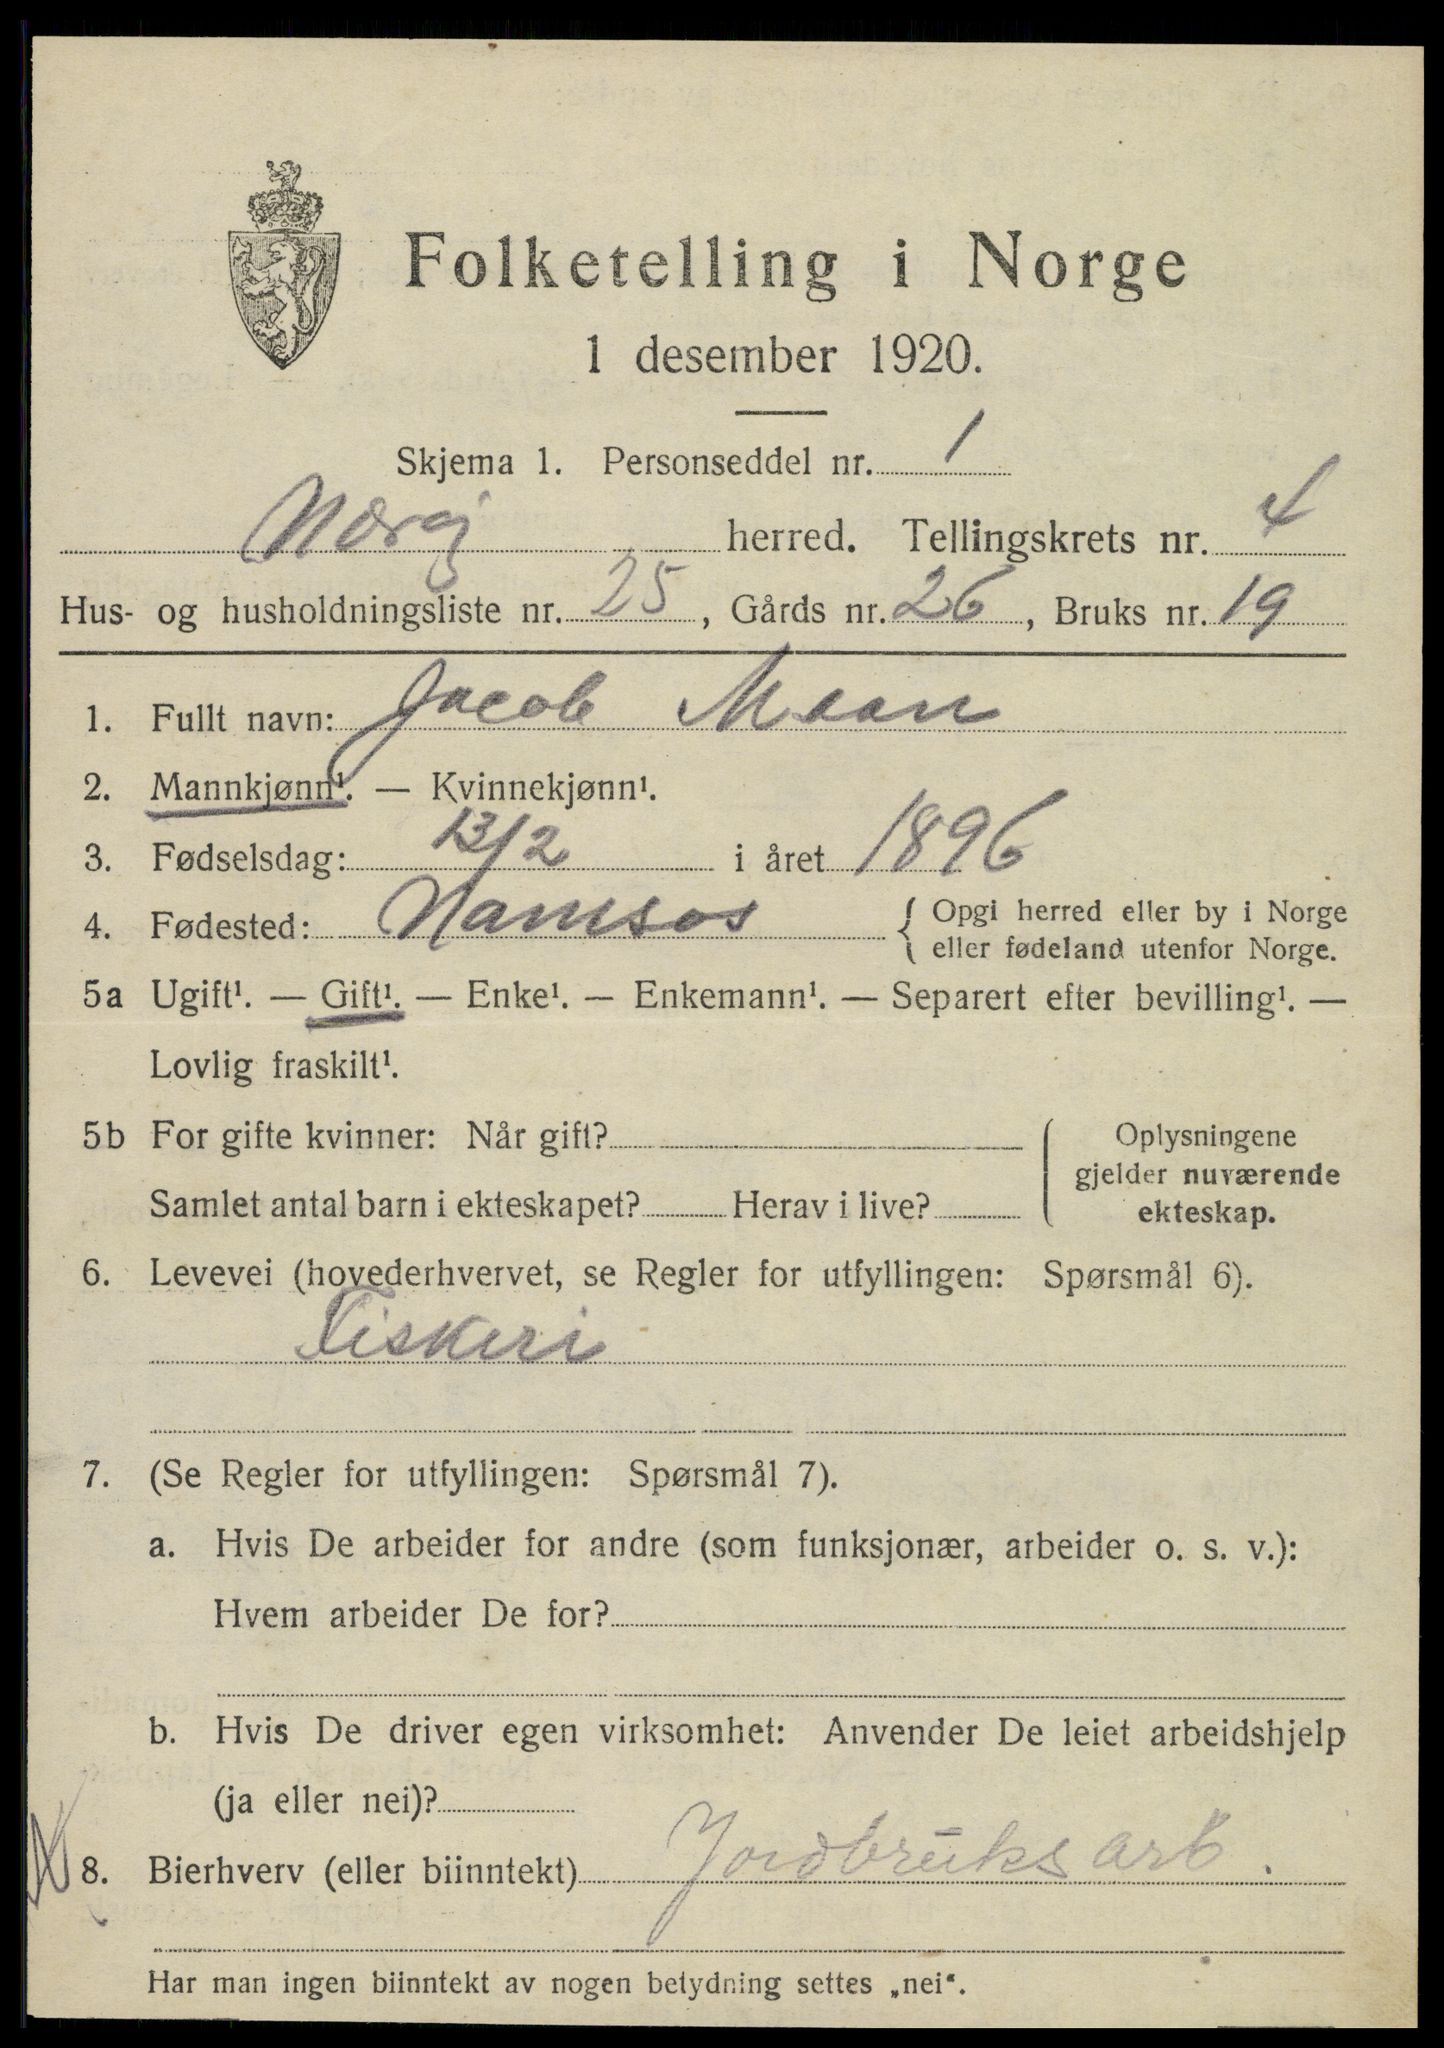 Folketelling i Norge
1 desember 1920.
Skjema 1. Personseddel nr. 1
Nærøy herred. Tellingskrets nr. 4
Hus- og husholdningsliste nr. 25, Gårds nr. 26, Bruks nr. 19
1. Fullt navn: Jacob Moan
2. Mannkjønn¹. — Kvinnekjønn¹.
3. Fødselsdag: 13/2 i året 1896
4. Fødested: Namsos { Opgi herred eller by i Norge
eller fødeland utenfor Norge.
5a Ugift¹. — Gift¹. — Enke¹. — Enkemann¹. — Separert efter bevilling¹. —
Lovlig fraskilt¹.
5b For gifte kvinner: Når gift?
Samlet antal barn i ekteskapet? Herav i live?
Oplysningene
gjelder nuværende
ekteskap.
6. Levevei (hovederhvervet, se Regler for utfyllingen: Spørsmål 6).
Fiskeri
7. (Se Regler for utfyllingen: Spørsmål 7).
a. Hvis De arbeider for andre (som funksjonær, arbeider o. s. v.):
Hvem arbeider De for?
b. Hvis De driver egen virksomhet: Anvender De leiet arbeidshjelp
(ja eller nei)?
8. Bierhverv (eller biinntekt) Jordbruksarb.
Har man ingen biinntekt av nogen betydning settes „nei“.